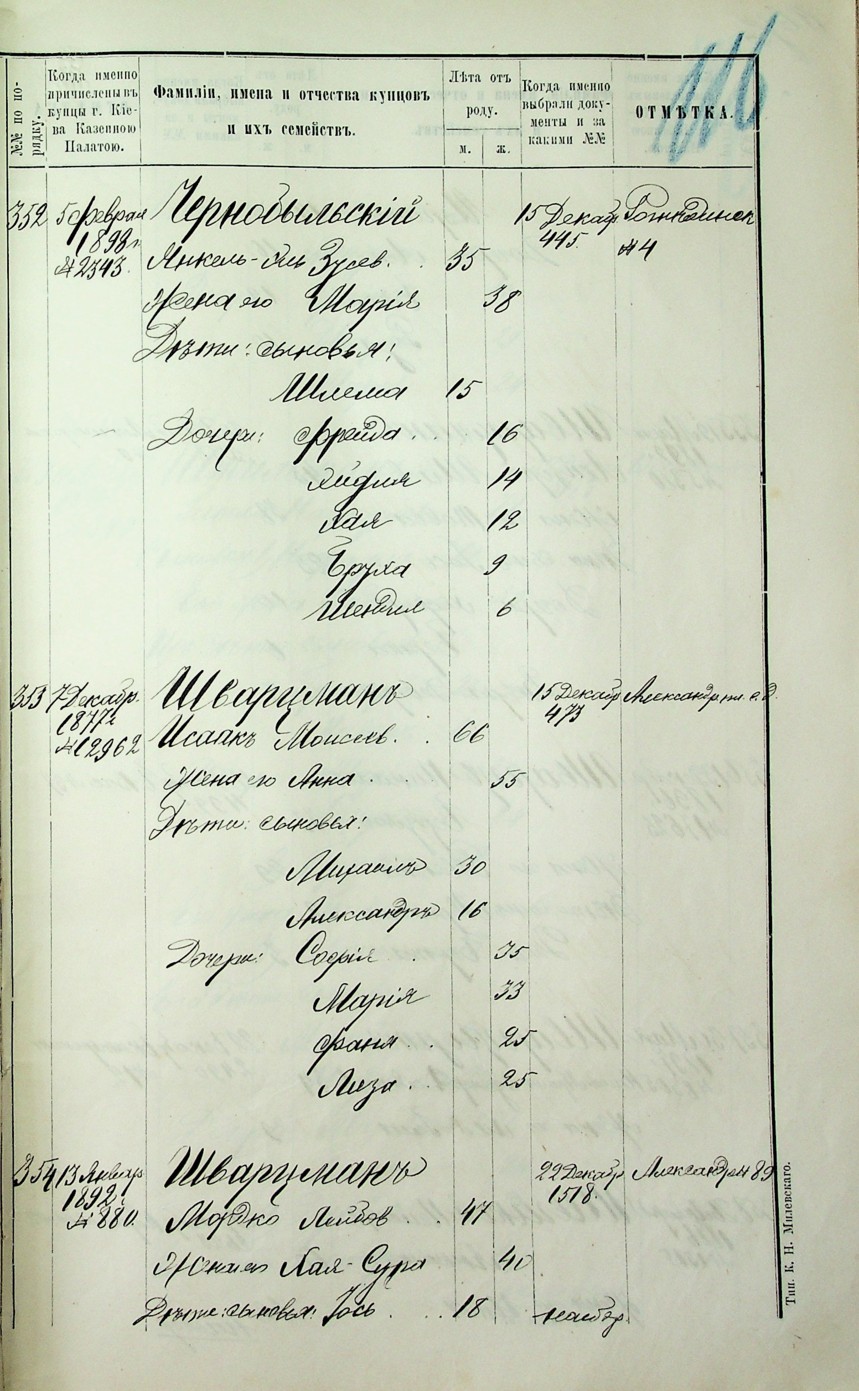 116
№№ по порядку.
Когда именно
причислены въ
купцы г. Кіе-
ва Казенною
Палатою.
Фамиліи, имена и отчества купцовъ
и ихъ семействъ.
Лѣта отъ
роду.
м. ж.
Когда именно
выбрали доку-
менты и за
какими №№
ОТМѢТКА.
352 5 февраля Чернобыльскій 15 Декабр
1898 г 445.
№ 2343. Янкель- Зусев. 35 № 4
Жена его Марія 38
Дѣти: сыновья:
Шлема 15
Дочери: Фрейда 16
14
Хая 12
Бруха 9
Шендля 6
353 7 Декабр. Шварцманъ 15 Декабр Александр
1877 г 473
№ 12962 Исаакъ Моисеев. 66
Жена его Анна 55
Дѣти: сыновья:
Михаилъ 30
Александръ 16
Дочери: Софія 35
Марія 33
Фаня 25
Лиза 25
354 13 Январ Шварцманъ 22 Декабр Александр № 89
1892 г 1518.
№ 880. Мордко Лейбов 47
Жена его Хая-Сура 40
Дѣти: сыновья: Іось 18
Тип. К. Н. Милевскаго.